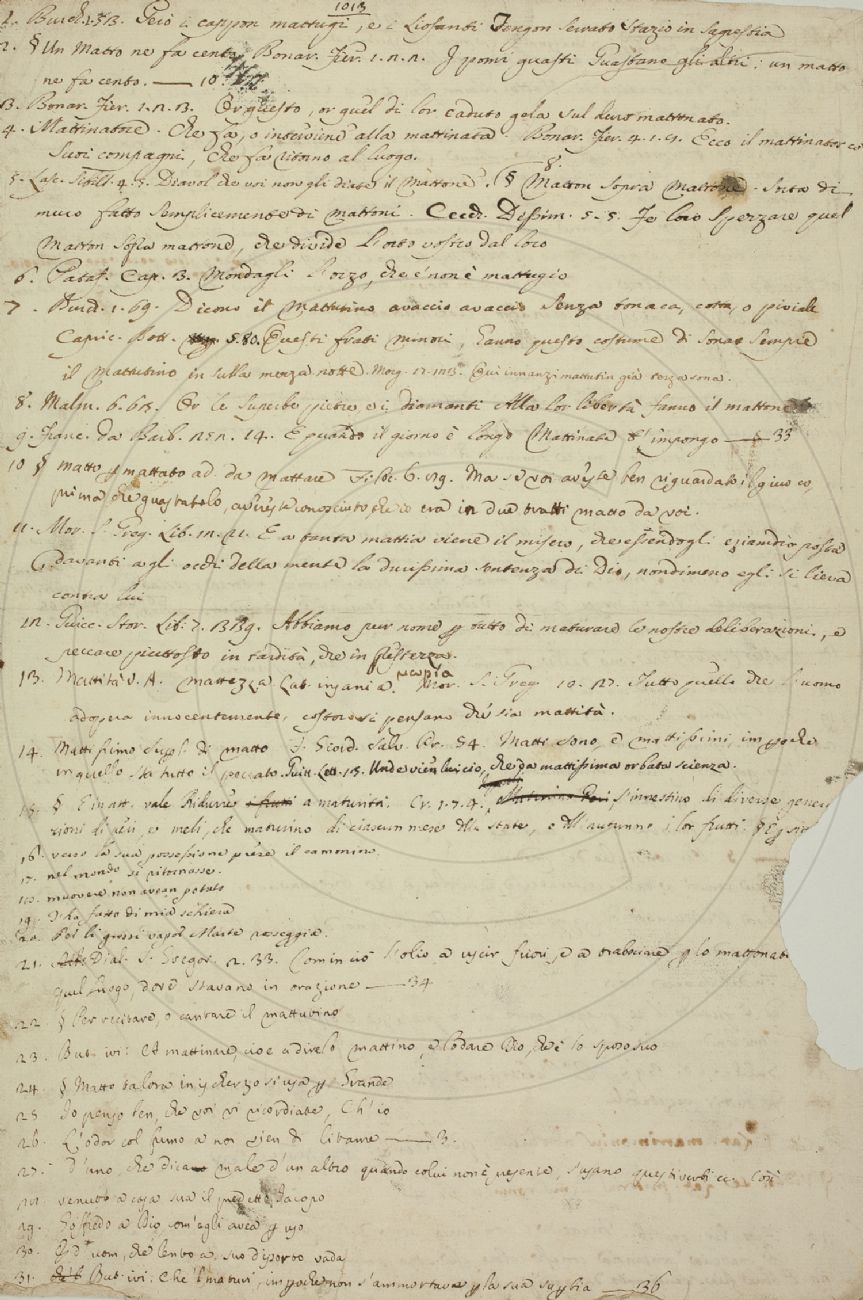 1013
1. Burch. 1. 513. Però i cappon mattugi, e i Liofanti Tengon serrato Stazio in Sagrestia
2. § Un Matto ne fa cento. Bonar. Fier. 1. 2. 2. I pomi guasti Guastano gli altri: un matto
ne fa cento. — 10.
3. Bonar. Fier. 1. 2. 3. Or questo, or quel di lor caduto gela sul duro mattonato.
4. Mattinatore. Che fa, o interviene alla mattinata. Bonar. Fier. 4. 1. 9. Ecco il mattinator co'
Suoi compagni, che fa ritorno al luogo.
8.
5. Lasc. Sibill. 4. 5. Diavol che voi non gli diate il Mattone. § Matton sopra Mattone. Sorta di
muro fatto semplicemente di mattoni. Cecch. Dissim. 5. 5. Fe loro spezzare quel
Matton sopra mattone, che divide l'orto vostro dal loro
6. Pataf. Cap. 3. Mondagli l'orzo, che e' non è mattugio
7. Burch. 1. 69. Dicono il Mattutino avaccio avaccio senza tonaca, cotta, o piviale
Capric. Bott. 5. 80. Questi frati minori, hanno questo costume di sonar sempre
il Mattutino in sulla mezza notte. Morg. Qui innanzi mattutin già terza sona.
8. Malm. 6. 68. Or le superbe pietre e i diamanti Alla lor libertà fanno il mattone
9. Franc. da Barb. 14. E quando il giorno è longo Mattinata t'impongo — 33
10 § Matto p mattato ad. da Mattare Filoc. 6. Ma se voi aveste ben riguardato il giuoco,
prima che guastatolo, avreste conosciuto, che io era in due tratti matto da voi.
11. Mor. S. Greg. Lib. E a tanta mattia viene il misero, che essendogli eziandio posta
davanti agli occhi della mente la durissima sentenza di Dio, nondimeno egli si lieva
contra lui
12. Guicc. Stor. Lib. 7. 339. Abbiamo pur nome p tutto di maturare le nostre deliberazioni, e
peccare piuttosto in tardità, che in prestezza.
13. Mattità V. A. Mattezza Lat. insania. μωρία Mor. S. Greg. 10. 27. Tutto quello che l'uomo
adopera innocentemente, costoro si pensano che sia mattità.
14. Mattissimo Superl. di matto F. Giord. Salv. Pr. 54. Matti sono, e mattissimi, imperocche
in quello sta tutto il peccato. Guitt. Lett. 15. Unde vien luicio, che da mattissima orbata scienza.
15. § E in att. vale Ridurre a maturità. Cr. 1. 7. 4. S'innestino di diverse genera
zioni di peri, e meli, che maturino di ciascun mese della state, e dell'autunno i lor frutti.
16. verso la sua possessione prese il cammino
17. nel mondo si ritornasse.
18. muovere non avean potuto
19. I' ho fatto di mia schiera
20. Per li grossi vapor Marte rosseggia.
21. Dial. S. Gregor. 2. 33. Cominciò l'olio a uscir fuori, e a trabociare p lo mattonato
quel luogo, dove stavano in orazione — 34
22. § Per recitare, o cantare il mattutino
23. But. ivi: Et mattinare, cioè a dire lo mattino, e lodare Dio, che è lo sposo suo
24. § Matto talora in ischerzo si usa p Grande
25 Io penso ben, che voi vi ricordiate, Ch'io
26. L'odor col fumo a noi vien di litame — 3.
27. D'uno, che dica male d'un altro quando colui non è presente, s'usano questi verbi ec. Così
28. venuto a casa sua il predetto Jacopo
29. Goffredo a Dio, com'egli avea p uso
30. D'uom, che lento a suo diporto vada
31. But. ivi: Che 'l maturi, imperocche non s'ammortava p la sua suppia — 36